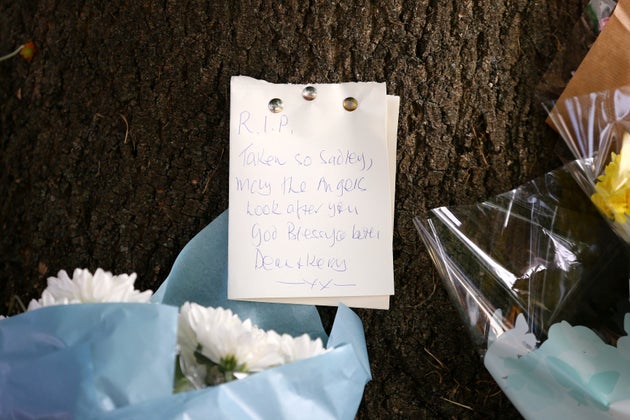 R.I.P.
Taken so sadley,
May the Angels
Look after you
God Bless
Dean + Kerry
xx